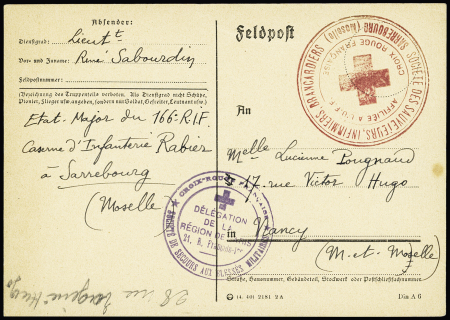 Absender:
Dienstgrad: Lieut^t
Vor- und Zuname: René Sabourdin
Feldpostnummer:
(Bezeichnung des Truppenteils verboten. Als Dienstgrad nicht Schütze,
Pionier, Flieger usw. angeben, sondern nur Soldat, Gefreiter, Leutnant usw.)
Etat-Major du 166e R.I.F.
Caserne d'Infanterie Rabier
à Sarrebourg
(Moselle)
Feldpost
SOCIETE DES SAUVETEURS, INFIRMIERS BRANCARDIERS
SARREBOURG (Moselle)
CROIX ROUGE FRANÇAISE
AFFILIÉE A L'U.F.F.
An
Melle Lucienne Pougnaud
17, rue Victor Hugo
in Nancy
(M. et. Moselle)
Straße, Hausnummer, Gebäudeteil, Stockwerk oder Postschließfachnummer
CROIX-ROUGE FRANÇAISE
SOCIÉTÉ DE SECOURS AUX BLESSÉS MILITAIRES
DÉLÉGATION
DE LA
RÉGION DE PARIS
21, R. François-Ier
28 rue Eugène Hugo
14 401 2181 2A
Din A 6